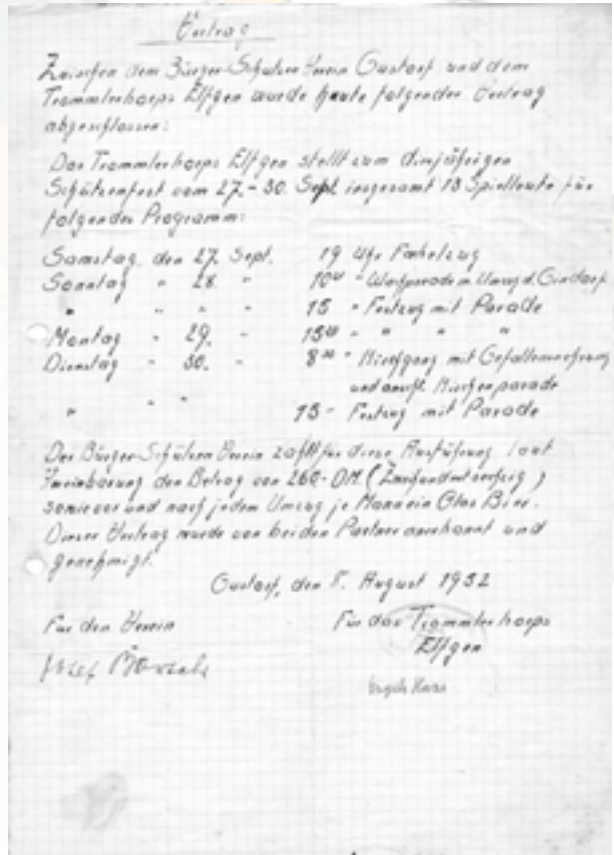 Vertrag
Zwischen dem Bürger-Schützen Verein Gustorf und dem
Trommlerkorps Elfgen wurde heute folgender Vertrag
abgeschlossen:
Das Trommlerkorps Elfgen stellt zum diesjährigen
Schützenfest vom 27.-30. Sept. insgesamt 13 Spielleute für
folgendes Programm:
Samstag den 27. Sept. 19 Uhr Fackelzug
Sonntag " 28. " 10 " Wachparade Umzug d. Gindorf
" " " " 15 " Festzug mit Parade
Montag " 29. " " " "
Dienstag " 30. " " Kirchgang mit Gefallenenehrung
und anschl. Kirchenparade
" " " 15 " Festzug mit Parade
Der Bürger-Schützen Verein zahlt für diese Ausführung laut
Vereinbarung den Betrag von 260.- DM. (Zweihundertsechzig)
sowie vor und nach jedem Umzug je Mann ein Glas Bier.
Dieser Vertrag wurde von beiden Partner anerkannt und
genehmigt.
Gustorf, den August 1952
Für den Verein Für das Trommlerkorps
Elfgen
Josef